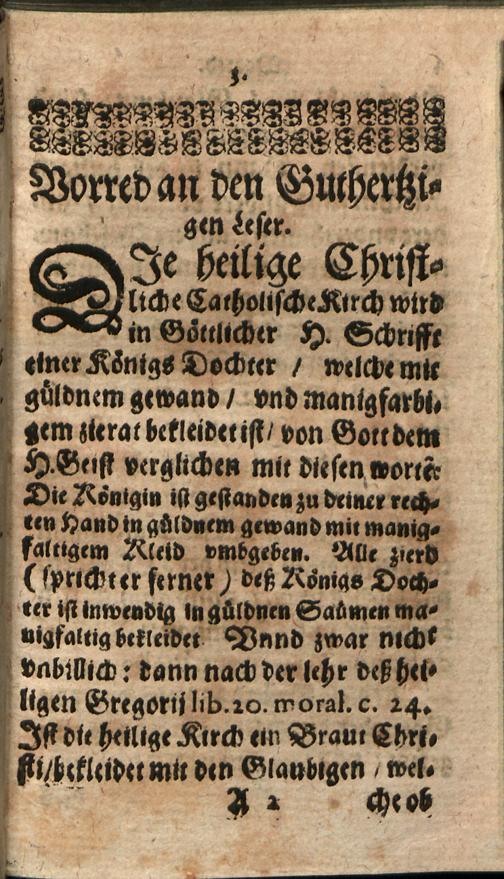 3.
Vorred an den Guthertzi-
gen Leser.
DIe heilige Christ-
liche Catholische Kirch wird
in Göttlicher H. Schrifft
einer Königs Dochter / welche mit
güldnem gewand / vnd manigfarbi-
gem zierat bekleidet ist / von Gott dem
H. Geist verglichen mit diesen wortẽ:
Die Königin ist gestanden zu deiner rech-
ten Hand in güldnem gewand mit manig-
faltigem Kleid vmbgeben. Alle zierd
( spricht er ferner ) deß Königs Doch-
ter ist inwendig in güldnen Saümen ma-
nigfaltig bekleidet Vnnd zwar nicht
vnbillich : dann nach der lehr deß hei-
ligen Gregorij lib. 20. moral. c. 24.
Ist die heilige Kirch ein Braut Chri-
sti / bekleidet mit den Glaubigen / wel-
A 2 che ob